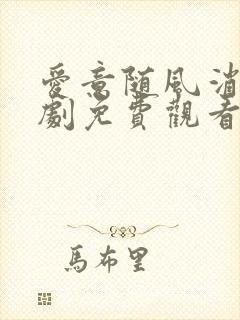 愛意随風消
劇免費觀看
馬布里